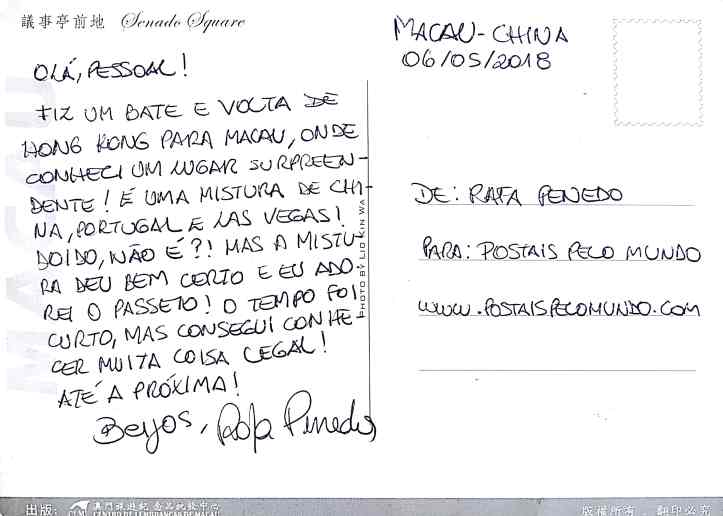 議事亭前地 Senado Square
MACAU
OLÁ, PESSOAL!
FIZ UM BATE E VOLTA DE
HONG KONG PARA MACAU, ONDE
CONHECI UM LUGAR SURPREEN-
DENTE! É UMA MISTURA DE CHI-
NA, PORTUGAL E LAS VEGAS!
DOIDO, NÃO É?! MAS A MISTU-
RA DEU BEM CERTO E EU ADO-
REI O PASSEIO! O TEMPO FOI
CURTO, MAS CONSEGUI CONHE-
CER MUITA COISA LEGAL!
ATÉ A PRÓXIMA!
Beijos, Rafa Penedo
PHOTO BY LIO KIN WA
MACAU - CHINA
06/05/2018
DE: RAFA PENEDO
PARA: POSTAIS PELO MUNDO
WWW.POSTAISPELOMUNDO.COM
出版: CLM 澳門旅遊紀念品批發中心
CENTRO DE LEMBRANÇAS DE MACAU
版權所有．翻印必究